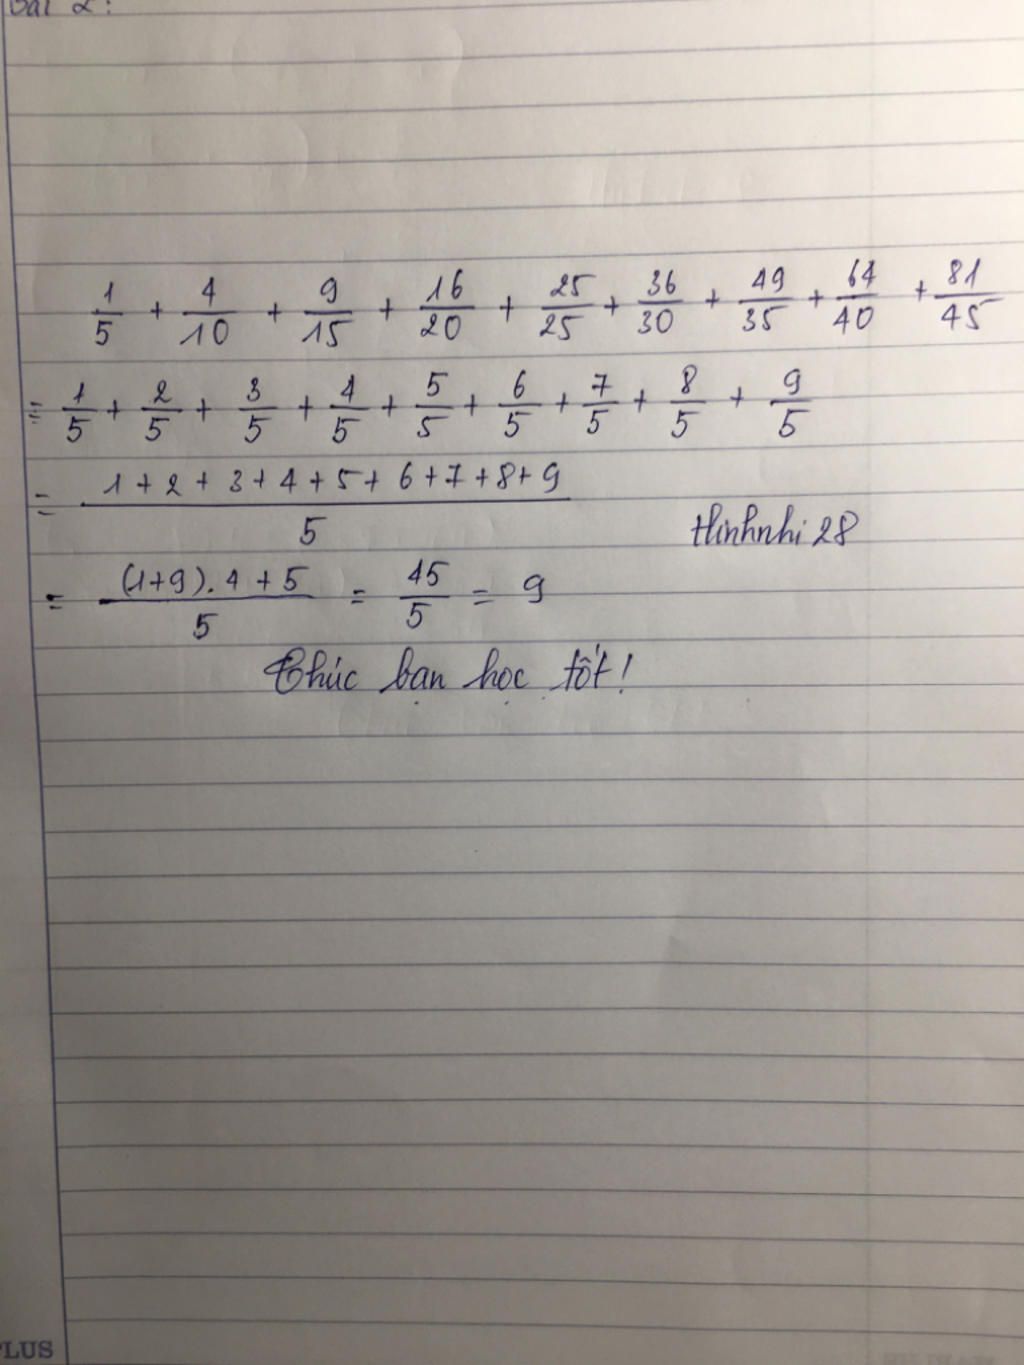 Bài 2:
1/5 + 4/10 + 9/15 + 16/20 + 25/25 + 36/30 + 49/35 + 64/40 + 81/45
= 1/5 + 2/5 + 3/5 + 4/5 + 5/5 + 6/5 + 7/5 + 8/5 + 9/5
= (1 + 2 + 3 + 4 + 5 + 6 + 7 + 8 + 9)/5
thinhnhi 28
= ((1+9).4 + 5)/5 = 45/5 = 9
Chúc bạn học tốt!
PLUS